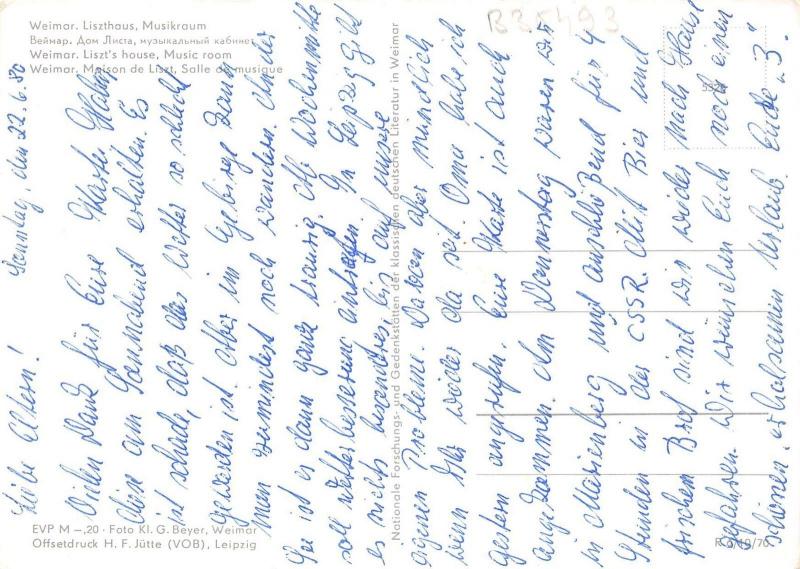 Weimar. Liszthaus, Musikraum
Веймар. Дом Листа, музыкальный кабинет
Weimar. Liszt's house, Music room
Weimar. Maison de Liszt, Salle de musique
B35493
532
Sonntag, den 22.6.80
Liebe Eltern!
Vielen Dank für Eure Karte. Habe
sie am Sonnabend erhalten. Es
ist schade, daß das Wetter so schlecht
geworden ist. Aber im Gebirge kann
man zumindest noch wandern. An der
See ist es dann ganz traurig. Ab Wochenmitte
soll Wetterbesserung eintreten. In Leipzig gibt
es nichts besonderes, bis auf unsere
eigenen Probleme. Darüber aber mündlich
wenn Ihr wieder da seid. Oma habe ich
gestern angerufen. Eure Karte ist auch
angekommen. Am Donnerstag waren wir
in Marienberg und anschließend für 4
Stunden in der CSSR. Mit Bier und
frischem Brot sind wir wieder nach Hause
gefahren. Wir wünschen Euch noch einen
schönen, erholsamen Urlaub. Eure "3"
Nationale Forschungs- und Gedenkstätten der klassischen deutschen Literatur in Weimar
EVP M –,20 · Foto Kl. G. Beyer, Weimar
Offsetdruck H. F. Jütte (VOB), Leipzig